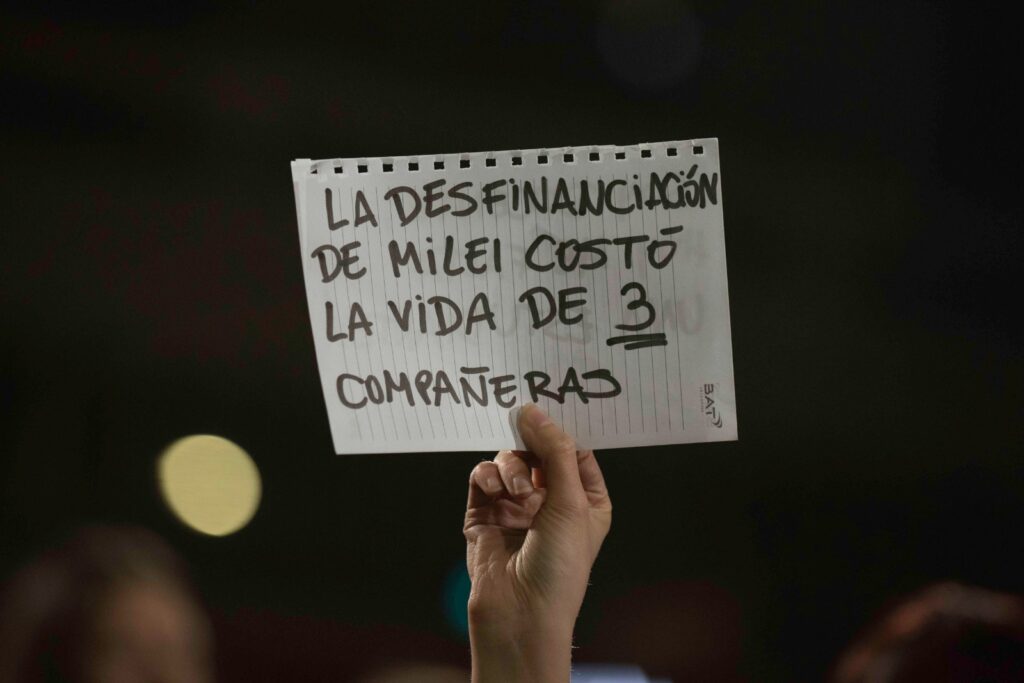 LA DESFINANCIACIÓN
DE MILEI COSTÓ
LA VIDA DE 3
COMPAÑERAS
BAT